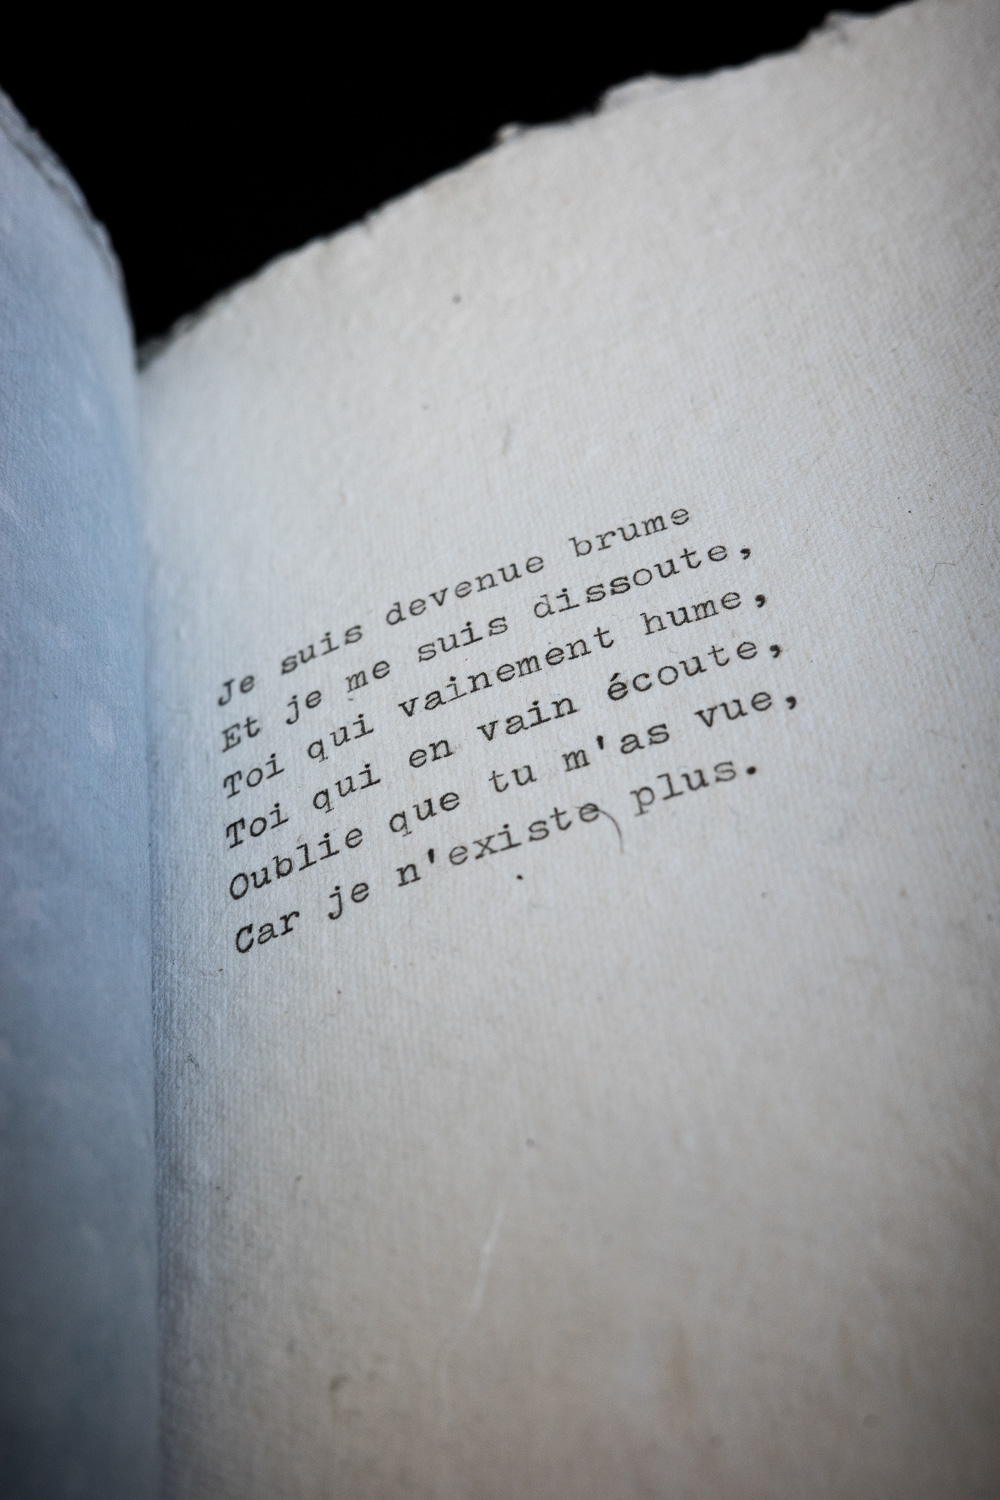 Je suis devenue brume
Et je me suis dissoute,
Toi qui vainement hume,
Toi qui en vain écoute,
Oublie que tu m'as vue,
Car je n'existe plus.